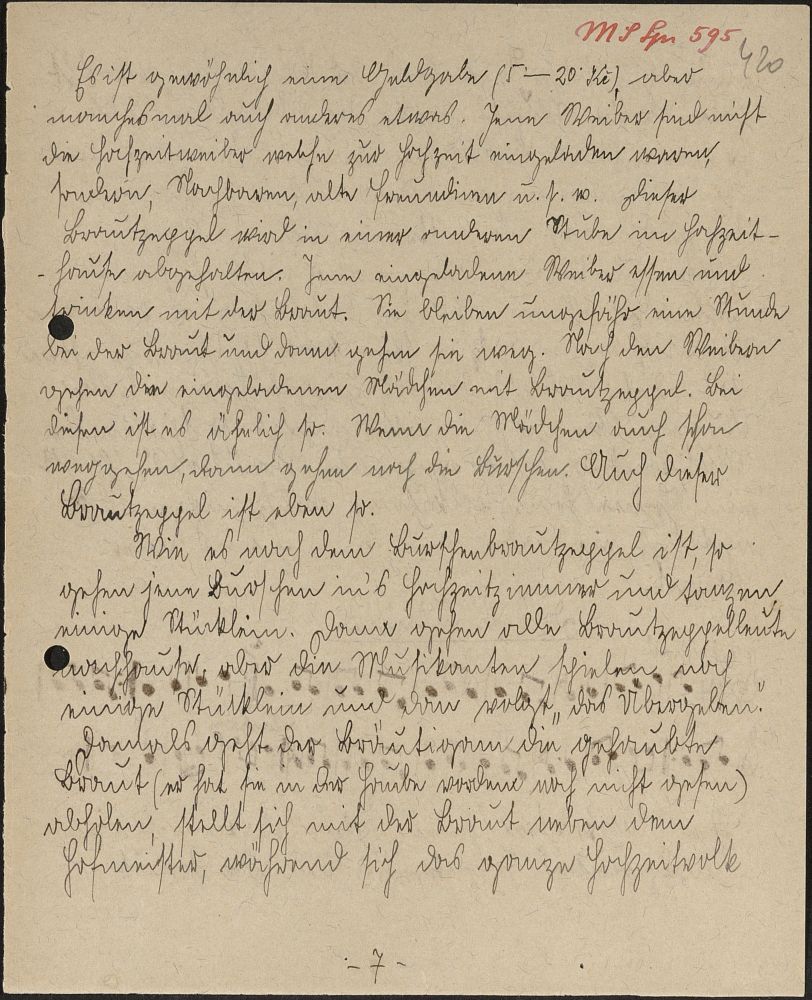 MS Spr 595
420
Es ist gewöhnlich eine Geldgabe (5 – 20 Kč), aber
manchesmal auch anderes etwas. Jene Weiber sind nicht
die Hochzeitweiber welche zur Hochzeit eingeladen waren,
sondern, Nachbaren, alte Freundinen u. s. w. Dieser
Brautzeppel wird in einer anderen Stube im Hochzeit-
-hause abgehalten. Jene eingeladene Weiber essen und
trinken mit der Braut. Sie bleiben ungefähr eine Stunde
bei der Braut und dann gehen sie weg. Nach den Weibern
gehen die eingeladenen Mädchen mit Brautzeppel. Bei
diesen ist es ähnlich so. Wenn die Mädchen auch schon
weggehen, dann gehen noch die Burschen. Auch dieser
Brautzeppel ist eben so.
Wie es nach dem Burschenbrautzeppel ist, so
gehen jene Burschen in's Hochzeitzimmer und tanzen
einige Stücklein. Dann gehen alle Brautzeppelleute
nachhause, aber die Musikanten spielen noch
einige Stücklein und dan volgt „das Übergeben".
Damals geht der Bräutigam die gehaubte
Braut (er hat sie in der Haube vordem noch nicht gesen)
abholen, stellt sich mit der Braut neben dem
Hofmeister, während sich das ganze Hochzeitvolk
- 7 -